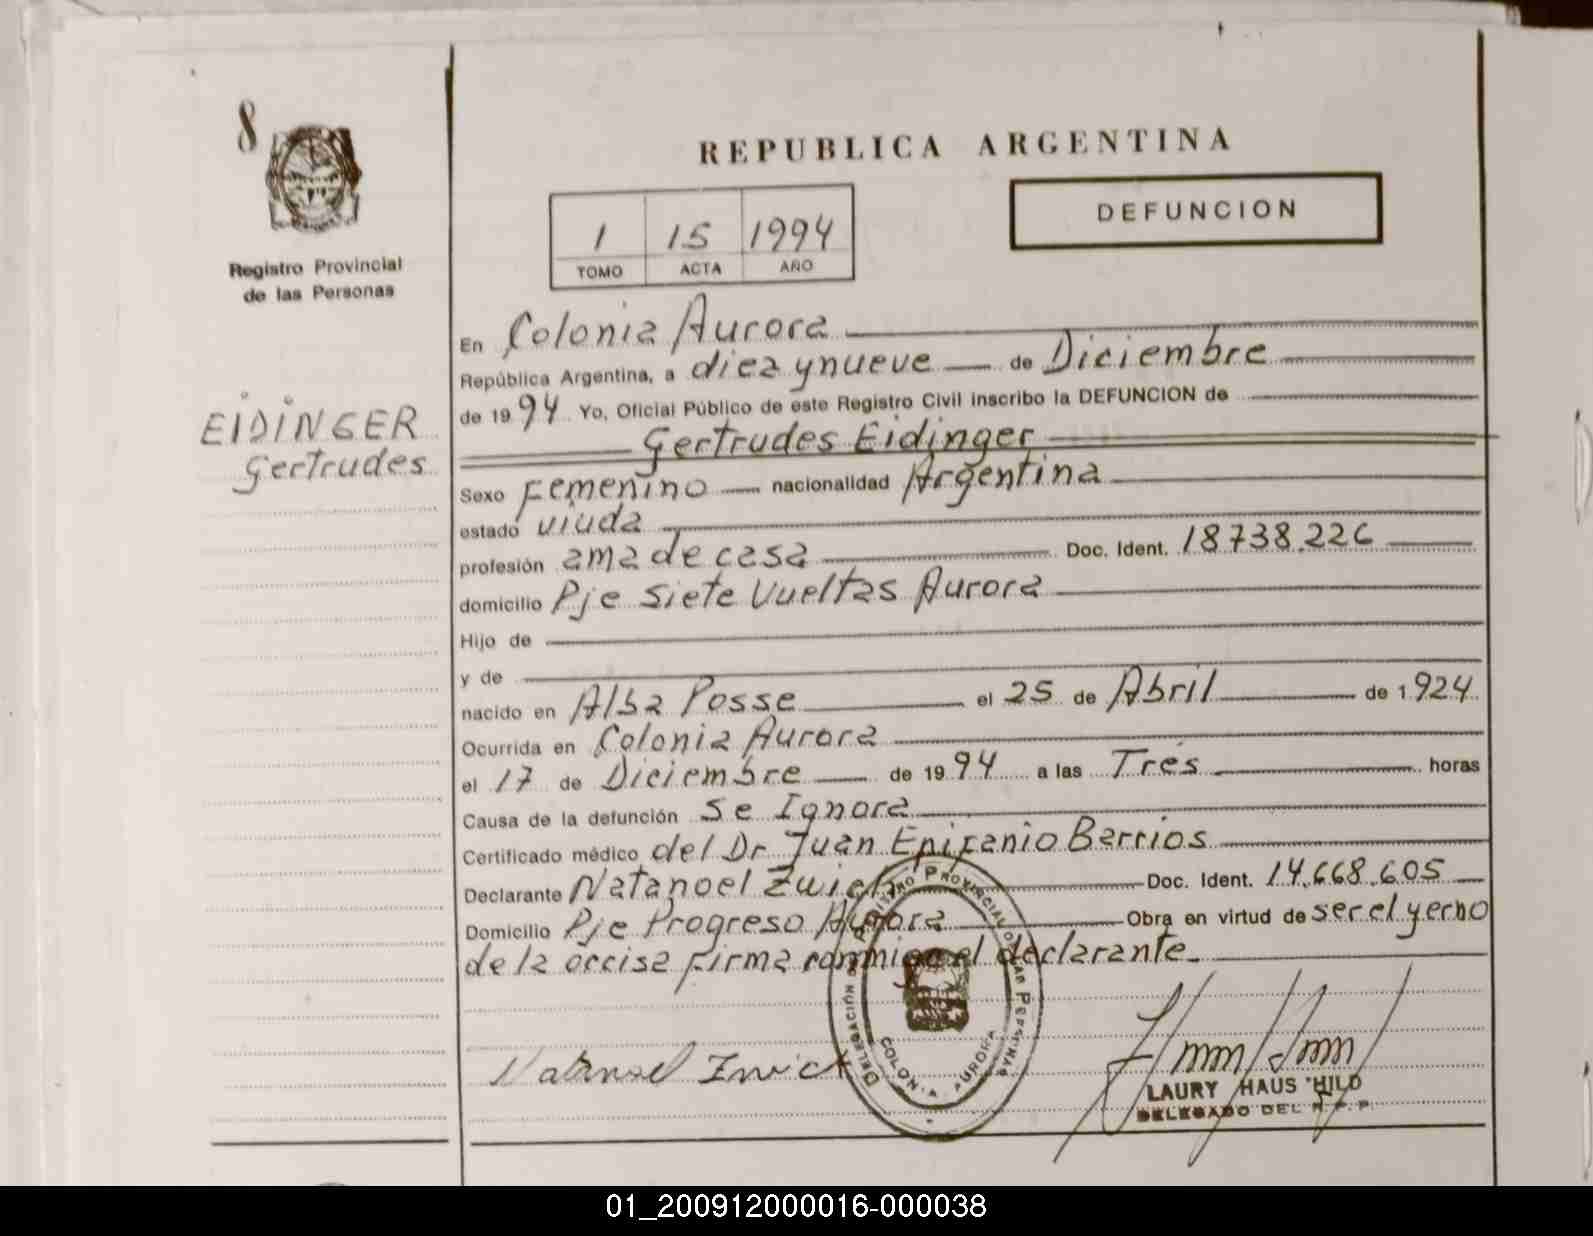 8
REPUBLICA ARGENTINA
DEFUNCION
1 15 1994
TOMO ACTA AÑO
Registro Provincial
de las Personas
EIDINGER
Gertrudes
En Colonia Aurora
República Argentina, a diez y nueve de Diciembre
de 1994 Yo, Oficial Público de este Registro Civil inscribo la DEFUNCION de
Gertrudes Eidinger
Sexo Femenino nacionalidad Argentina
estado viuda
profesión ama de casa Doc. Ident. 18738.226
domicilio Pje Siete Vueltas Aurora
Hijo de
y de
nacido en Alba Posse el 25 de Abril de 1.924
Ocurrida en Colonia Aurora
el 17 de Diciembre de 1994 a las Tres horas
Causa de la defunción Se Ignora
Certificado médico del Dr Juan Epifanio Barrios
Declarante Natanoel Zwich Doc. Ident. 14.668.605
Domicilio Pje Progreso Aurora Obra en virtud de ser el yerno
de la occisa firma conmigo el declarante
COLONIA AURORA
Natanoel
LAURY HAUS HILD
DELEGADO DEL R.P.P.
01_200912000016-000038